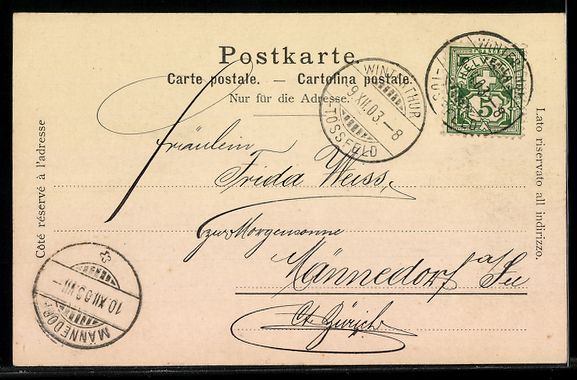 Postkarte.
Carte postale. — Cartolina postale.
Nur für die Adresse.
Côté réservé à l'adresse
Lato riservato all indirizzo.
WINTERTHUR
9.XII.03.-8
TÖSSFELD
HELVETIA
5
Fräulein
Frida Weiss,
zur Morgensonne
Männedorf a/See
Ct. Zürich
10.XII.03.VII-
MÄNNEDORF